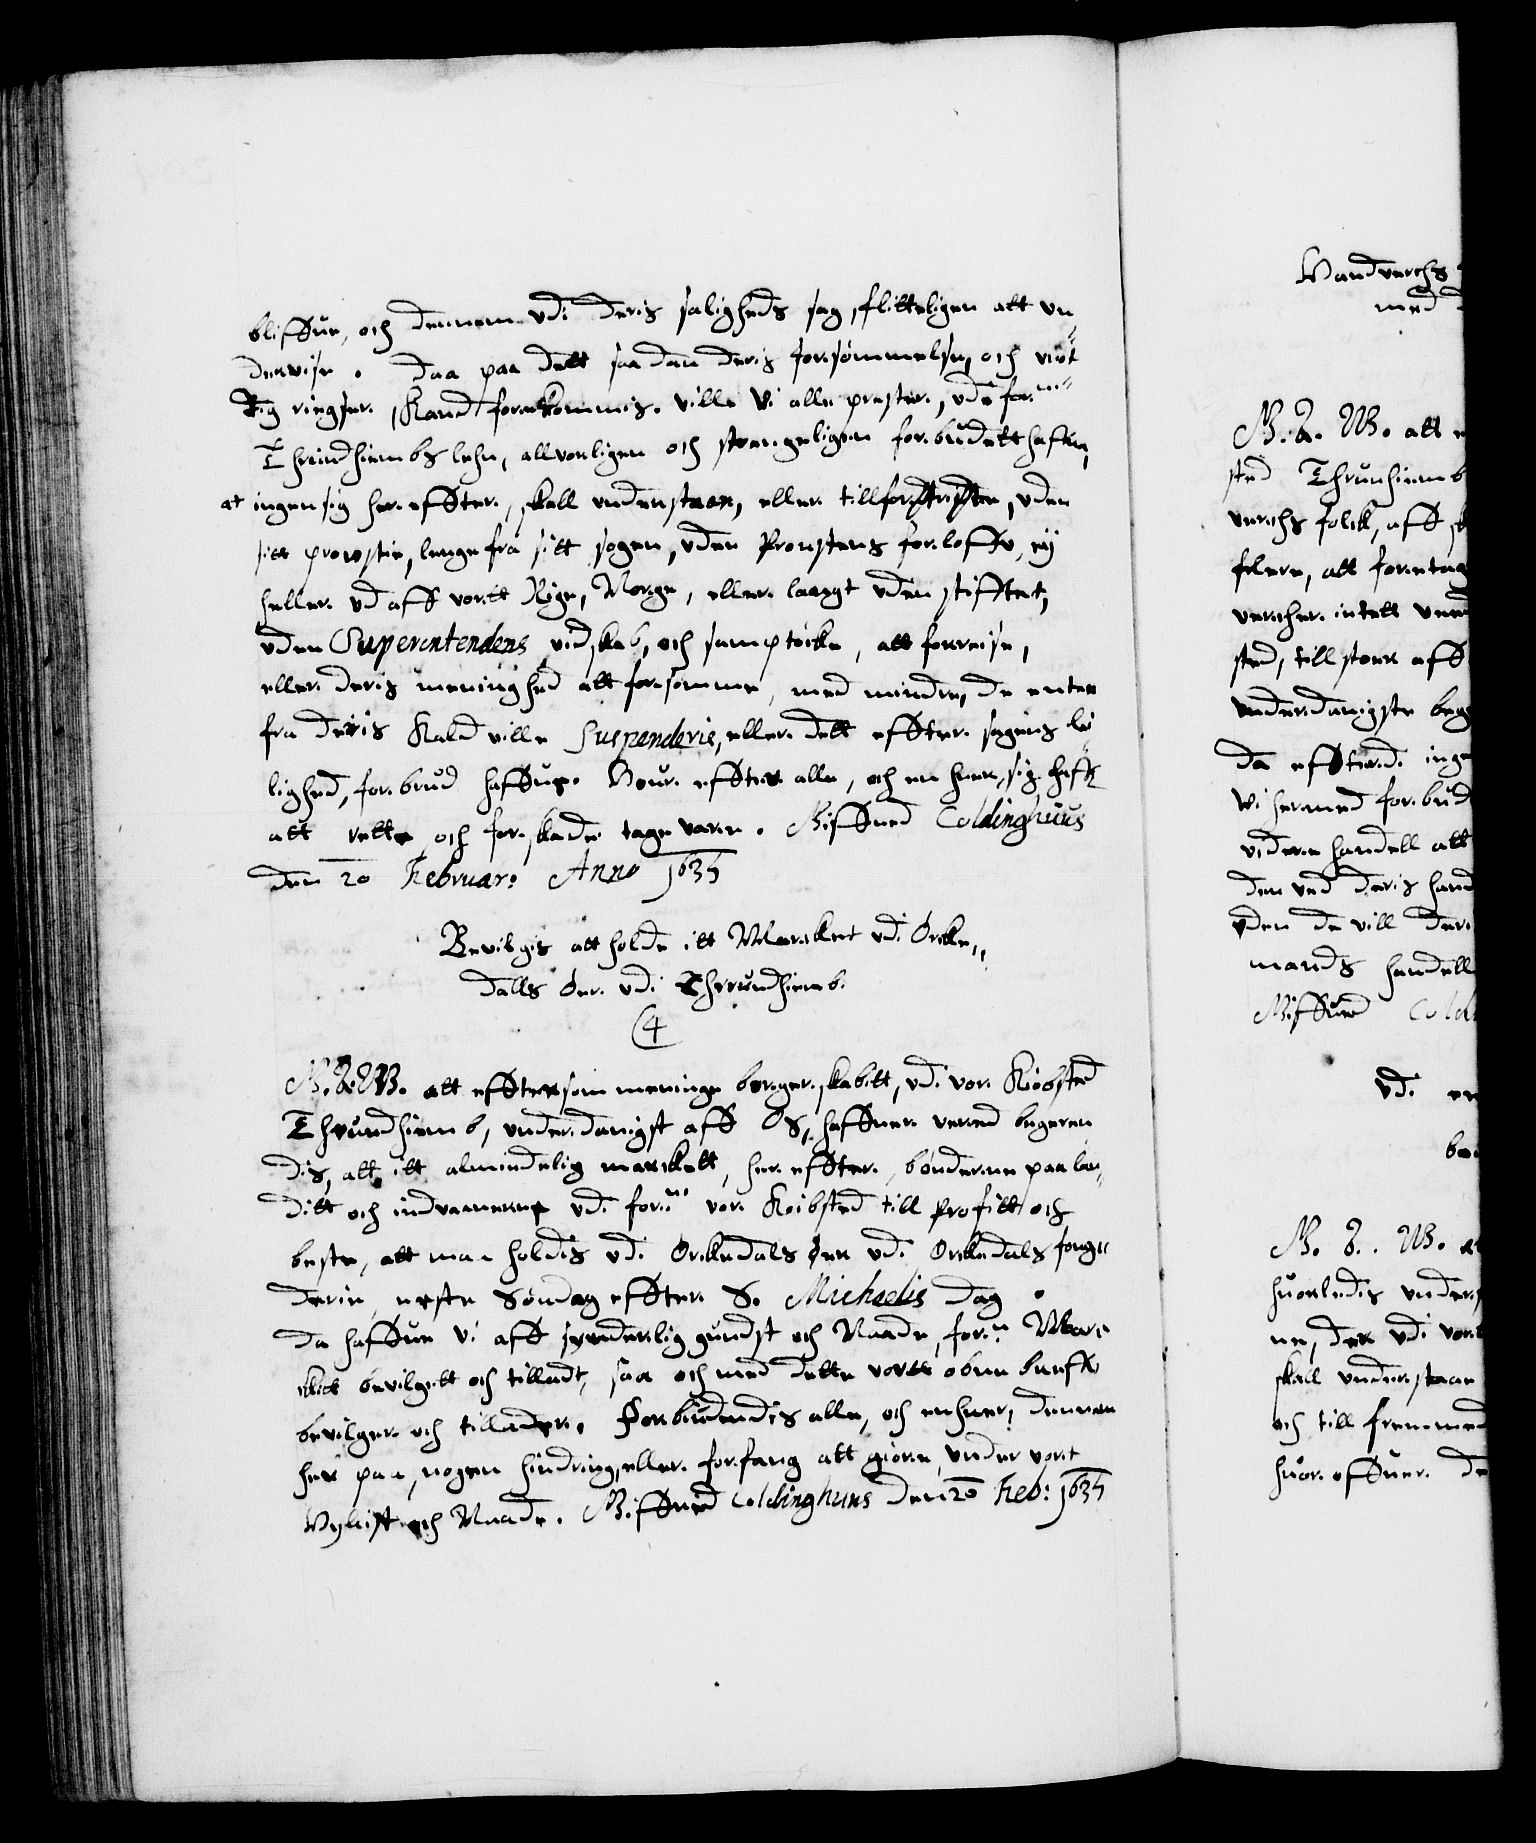 bliffue, och dennem udi deris saligheds sag, flitteligen att un¬
dervise. Daa paa dett saadan deris forsømmelse, och
Kand forekommis. Ville Vi alle prester, udi forne
Thrundhiembs lehn, alvorligen och strengeligen forbudett haffue,
at ingen sig her effter, skall understaae, eller tillfordriste, uden
sitt prowstie, lenge fra sitt sogen, uden Proustens forloff, ej
heller ud aff vortt Rige, Norge, eller langt uden stifftet,
uden Superintendens vidskab, och samptöcke, att forreise,
eller deris meninghed att forsømme, med mindre, de enten
fra deris Kald ville Suspenderis, eller dett effter sagens lei¬
lighed, forbrud haffue. Hour effter alle, och en huer, sig haffr
att rette och for skade tage vare. Giffued Coldinghuus
den 20 Februar: Anno 1635
Bevilgis att holde itt Marcket udi Örcke¬
dalls Ör. udi Thrundhiemb.
4
G. A. W. att efftersom meninge borgerskabitt, udi vor Kiøbsted
Thrundhiemb, underdanigst aff Os, haffuer verred begeren
dis, att itt almindelig marckett, her effter, bønderne paa lan¬
ditt och indvaanerne udi forne vor Kiöbsted till Profitt och
beste, att maa holdis udi Örckedals ören udi Orckedals fougu
derie, neste Søndag effter S. Michaelis dag.
da haffue Vi aff synderlig gundst och Naade, forne Mar¬
ckett bevilgett och tilladt, saa och med dette vortt obne breff
bevilger och tillader. Forbiudendis alle, och enhuer, dennem
her paa, nogen hindring, eller forfang att giøre, under vort
Hyliist och Naade. Giffued Coldinghuus den 20 Feb: 1635
Handverchs
med
G. A. W. att
sted Thrunhiemb
verchs folck, aff
flere, att foretag
vercher intett
sted, till stoer aff
underdanigste beg
da effterd. inge
Vi hermed forbud
videre handell att
den ved deris hand
uden de vill deri
mands handell
Giffued Cold
Udi en
bo
G. A. W. at
huorledis unders
ne, der udi vor
skall understaae
och till fremmed
huor offuer de